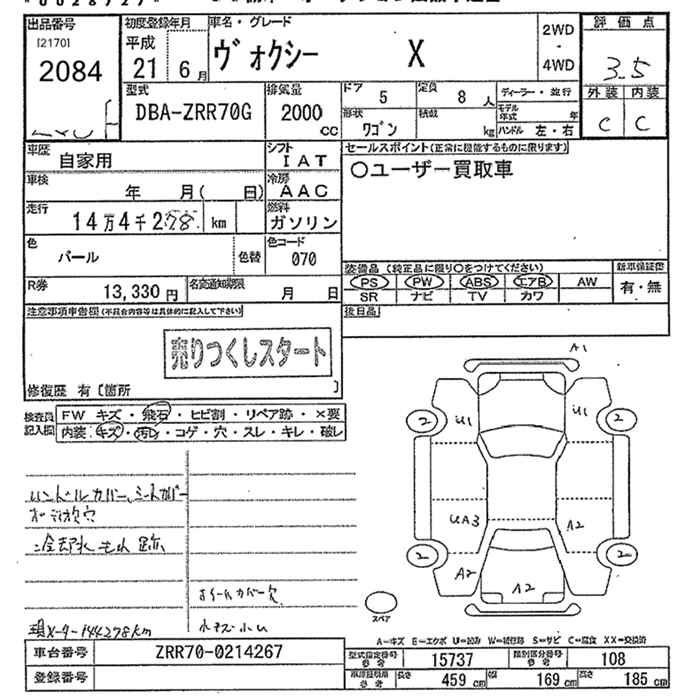 出品番号
[2170]
2084
初度登録年月
平成
21 6月
車名・グレード
ヴォクシー X
2WD
・
4WD
評価点
3.5
外装 内装
C C
型式
DBA-ZRR70G
排気量
2000
cc
ドア
5
定員
8 人
形状
ワゴン
積載
kg
ディーラー・並行
モデル年式 年
ハンドル 左・右
車歴
自家用
シフト
IAT
車検
年 月( 日)
冷房
AAC
走行
14万4千278 km
燃料
ガソリン
色
パール
色替
色コード
070
R券
13,330 円
名変通知期限
月 日
セールスポイント(正常に機能するものに限ります)
○ユーザー買取車
装備品 (純正品に限り○をつけてください)
PS PW ABS エアB AW
SR ナビ TV カワ
新車保証書
有・無
後日品
注意事項申告欄(不具合内容等は具体的に記入して下さい)
売りつくしスタート
修復歴 有〔箇所 〕
検査員記入欄
FW キズ・飛石・ヒビ割・リペア跡・×要
内装・キズ・汚レ・コゲ・穴・スレ・キレ・破レ
ハンドルカバー、シートカバー
オーディオ欠
冷却水もれ跡
ホイールカバー欠
小キズ・小凹
現メーター144278km
A1
U1 U1
2 2
UA3 A2
2 2
A2 A2
スペア
A=キズ E=エクボ U=凹み W=補修跡 S=サビ C=腐食 XX=交換済
車台番号
ZRR70-0214267
登録番号
型式指定番号
参考
15737
類別区分番号
参考
108
車庫証明用
参考
長さ
459 cm
幅
169 cm
高さ
185 cm